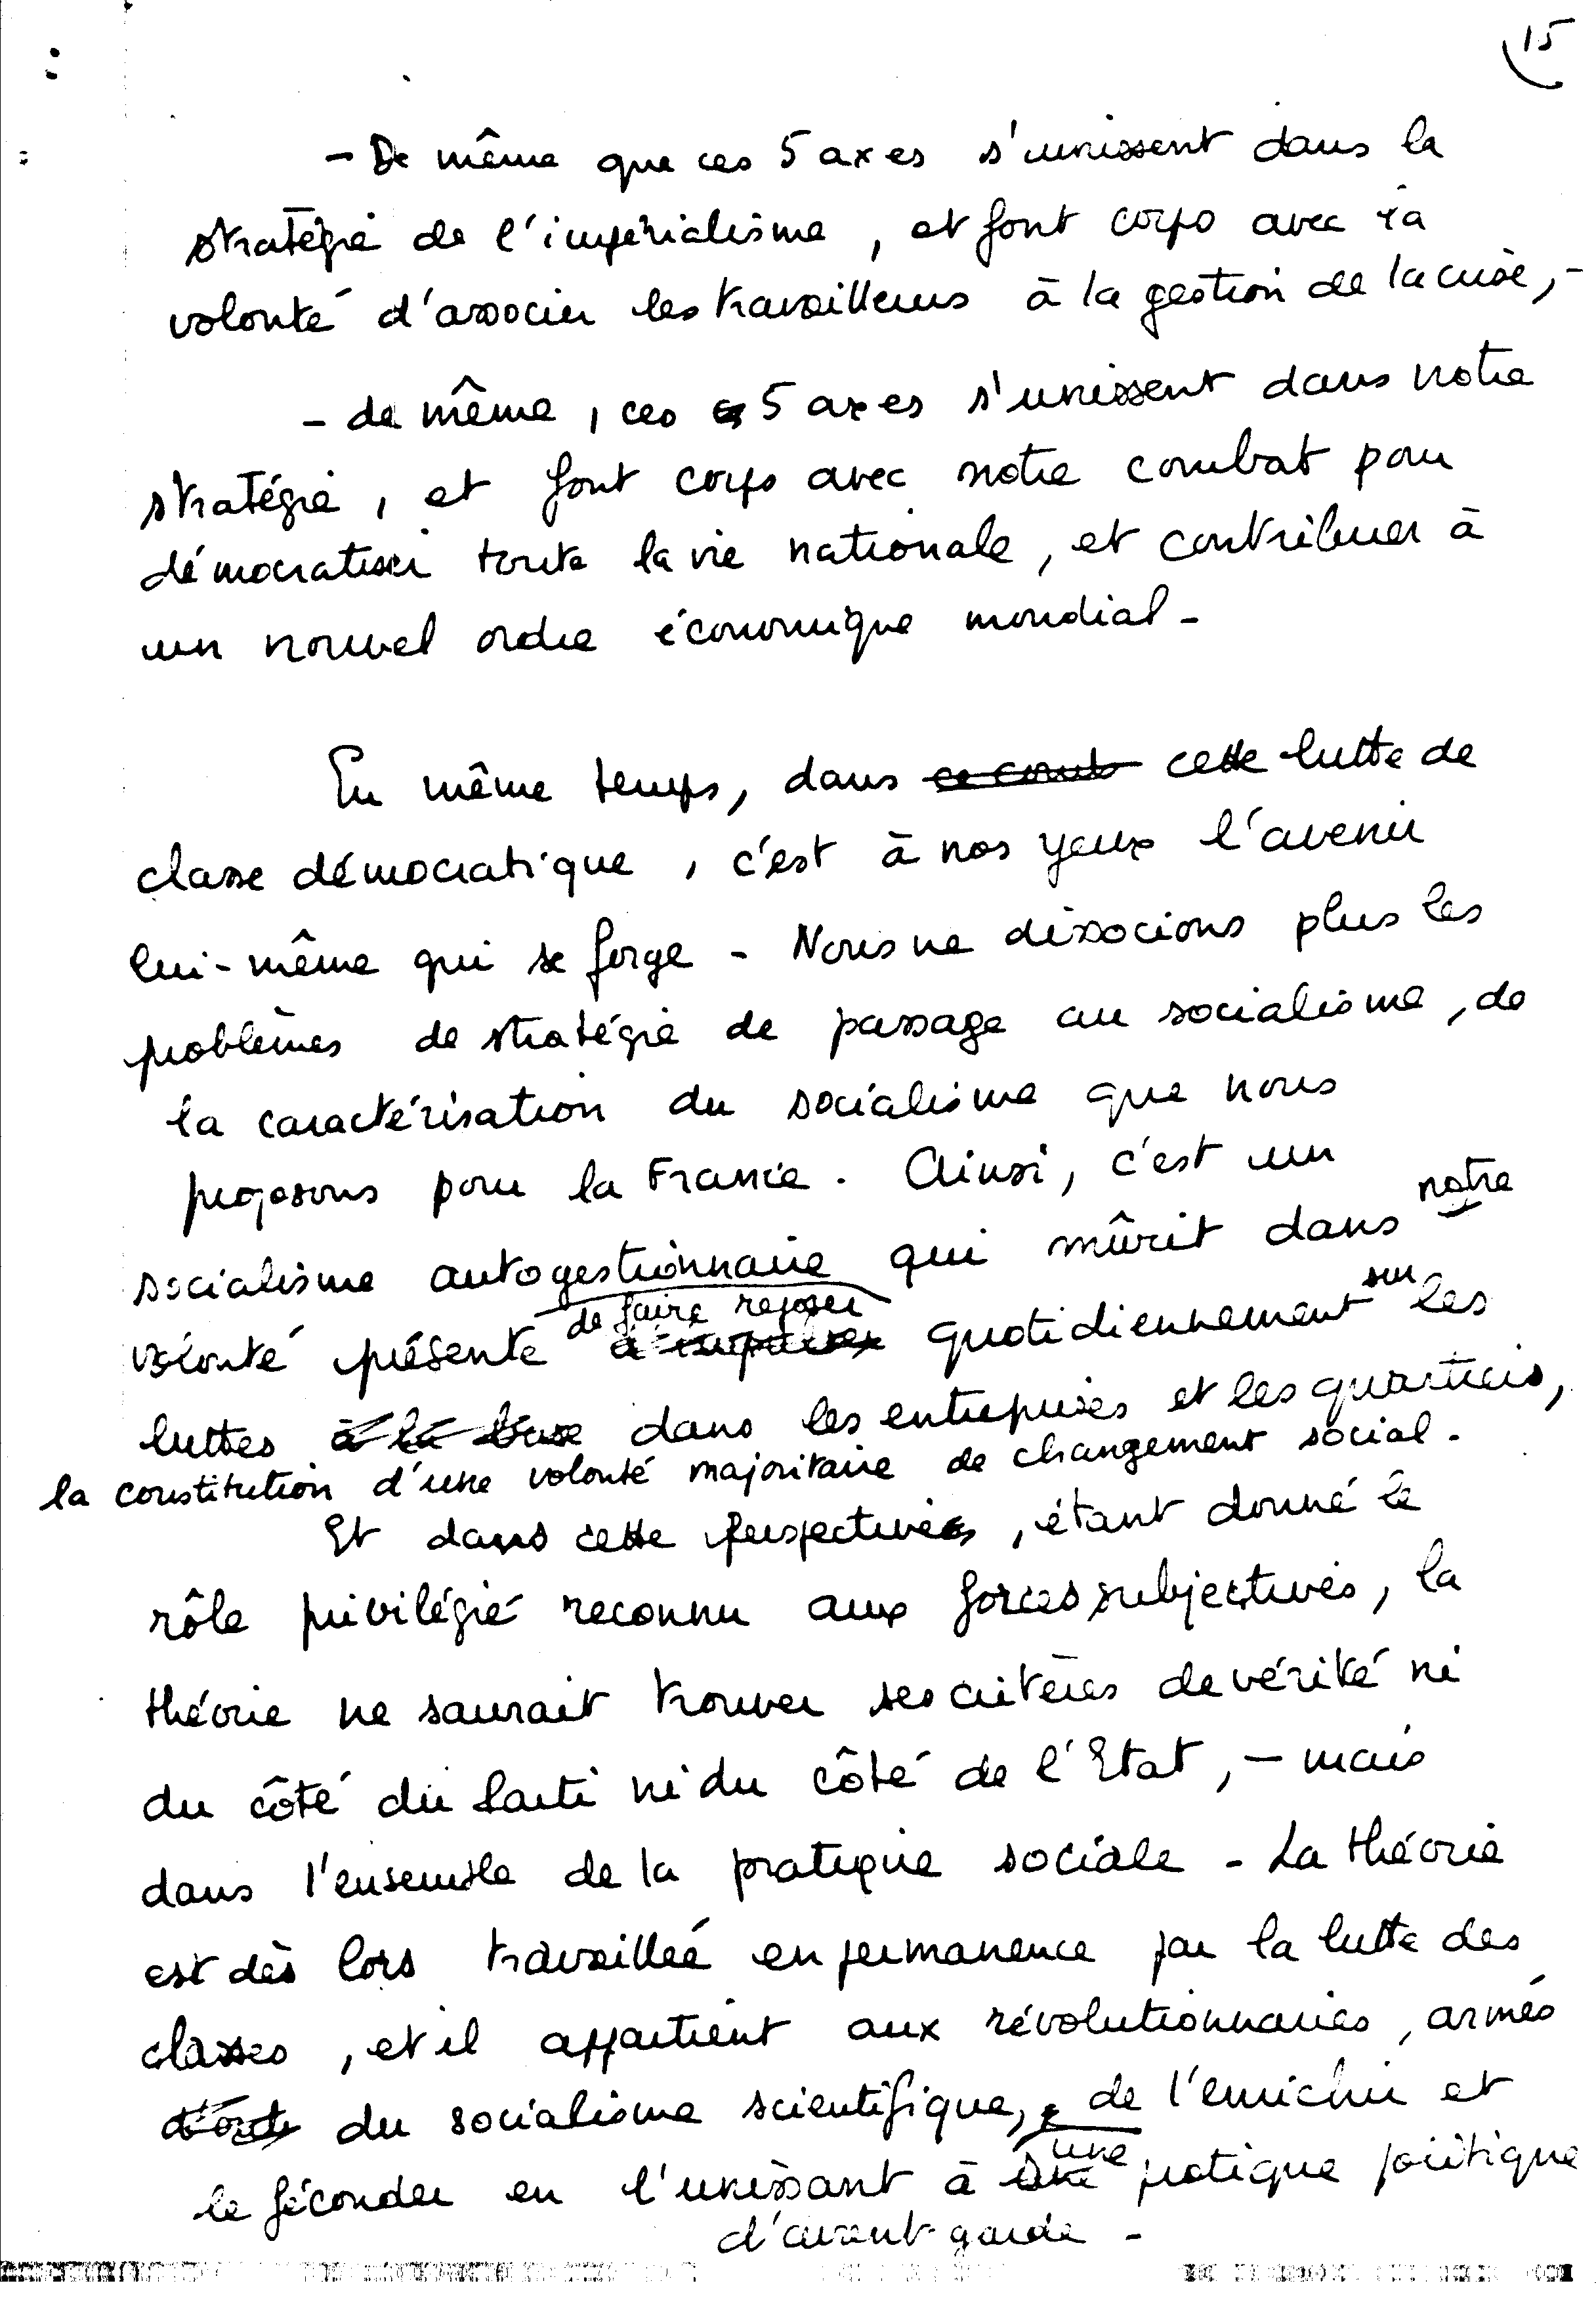 15
- De même que ces 5 axes s'unissent dans la
stratégie de l'impérialisme, et font corps avec sa
volonté d'associer les travailleurs à la gestion de la crise, -
- de même, ces 5 axes s'unissent dans notre
stratégie, et font corps avec notre combat pour
démocratiser toute la vie nationale, et contribuer à
un nouvel ordre économique mondial -
En même temps, dans ce comb cette lutte de
classe démocratique, c'est à nos yeux l'avenir
lui-même qui se forge - Nous ne dissocions plus les
problèmes de stratégie de passage au socialisme, de
la caractérisation du socialisme que nous
proposons pour la France. Ainsi, c'est un
socialisme autogestionnaire qui mûrit dans notre
volonté présente de faire reposer quotidiennement sur les
luttes à la base dans les entreprises et les quartiers,
la constitution d'une volonté majoritaire de changement social -
Et dans cette perspective, étant donné le
rôle privilégié reconnu aux forces subjectives, la
théorie ne saurait trouver ses critères de vérité ni
du côté du Parti ni du côté de l'Etat, - mais
dans l'ensemble de la pratique sociale - La théorie
est dès lors travaillée en permanence par la lutte des
classes, et il appartient aux révolutionnaires, armés
du socialisme scientifique, de l'enrichir et
le féconder en l'unissant à une pratique politique
d'avant-garde -